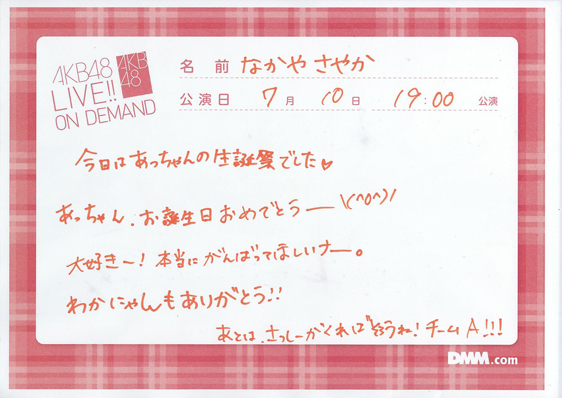 AKB48
LIVE!!
ON DEMAND
AKB
48
名 前 なかや さやか
公演日 7 月 10 日 19:00 公演
今日はあっちゃんの生誕祭でした♥
あっちゃん、お誕生日おめでとうー\(^o^)/
大好きー!本当にがんばってほしいナー。
わかにゃんもありがとう!!
あとは、さっしーがくれば揃うね!チームA!!!
DMM.com